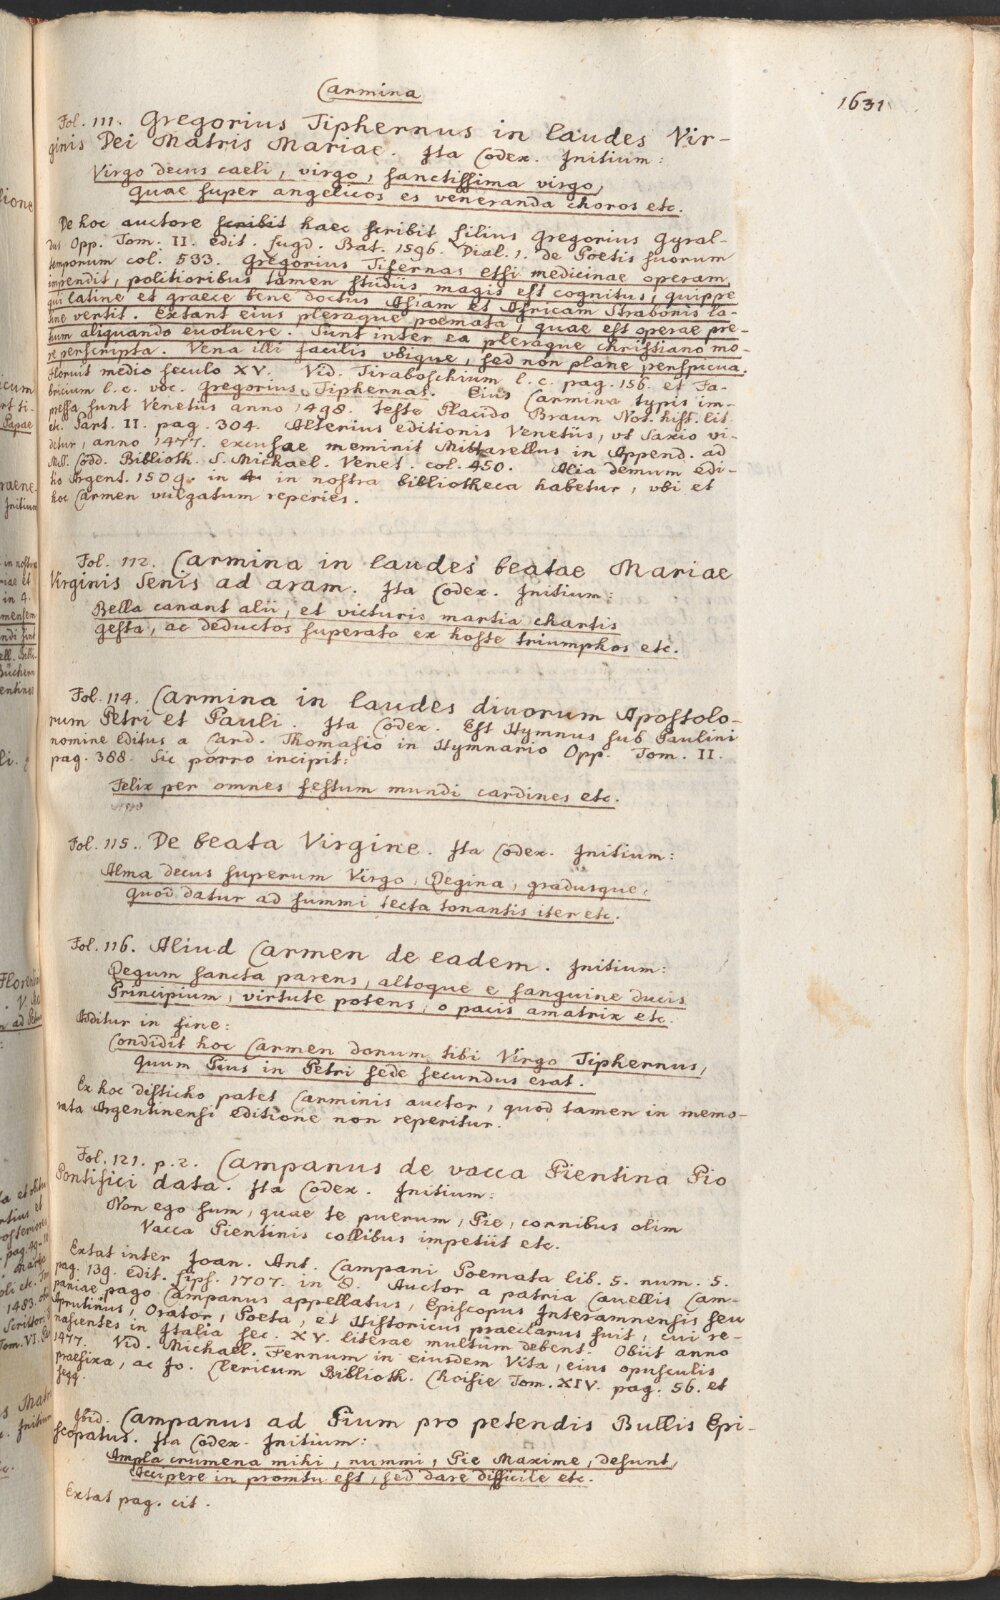 Carmina
1631
Fol. 111. Gregorius Tiphernus in laudes Vir-
ginis Dei Matris Mariae. Ita Codex. Initium:
Virgo decus caeli, virgo, sanctissima virgo,
Quae super angelicos es veneranda choros etc.
De hoc auctore scribit haec scribit Lilius Gregorius Gyral-
dus Opp. Tom. II. edit. Lugd. Bat. 1696. Dial. 1. de Poetis suorum
temporum col. 533. Gregorius Tifernas etsi medicinae operam
impendit, politioribus tamen studiis magis est cognitus, quippe
qui latine et graece bene doctus Asiam et Africam Strabonis la-
tine vertit. Extant eius pleraque poemata, quae est operae pre-
tium aliquando evoluere. Sunt inter ea pleraque christiano mo-
re perscripta. Vena illi facilis ubique, sed non plane perspicua.
Floruit medio seculo XV. Vid. Tiraboschium l. c. pag. 156. et Fa-
bricium l. c. voc. Gregorius Tiphernas. Eius Carmina typis im-
pressa sunt Venetiis anno 1498. teste Placido Braun Not. hist. lit.
etc. Part. II. pag. 304. Alterius editionis Venetiis, vt Saxio vi-
detur, anno 1477. excusae meminit Mittarellus in Append. ad
MSS. Codd. Biblioth. S. Michael. Venet. col. 450. Alia demum edi-
tio Argent. 1509. in 4. in nostra bibliotheca habetur, vbi et
hoc Carmen vulgatum reperies.
Fol. 112. Carmina in laudes beatae Mariae
Virginis Senis ad aram. Ita Codex. Initium:
Bella canant alii, et victuris martia chartis
Gesta, ac deductos superato ex hoste triumphos etc.
Fol. 114. Carmina in laudes divorum Apostolo-
rum Petri et Pauli. Ita Codex. Est Hymnus sub Paulini
nomine editus a Card. Thomasio in Hymnario Opp. Tom. II.
pag. 388. Sic porro incipit:
Felix per omnes festum mundi cardines etc.
Fol. 115. De beata Virgine. Ita Codex. Initium:
Alma decus superum Virgo, Regina, gradusque,
Quod datur ad summi tecta tonantis iter etc.
Fol. 116. Aliud Carmen de eadem. Initium:
Regum sancta parens, altoque e sanguine ducis
Principium, virtute potens, o pacis amatrix etc.
Additur in fine:
Condidit hoc Carmen donum tibi Virgo Tiphernus,
Quum Pius in Petri sede secundus erat.
Ex hoc disticho patet Carminis auctor, quod tamen in memo-
rata Argentinensi editione non reperitur.
Fol. 121. p. 2. Campanus de vacca Pientina Pio
Pontifici data. Ita Codex. Initium:
Non ego sum, quae te puerum, Pie, cornibus olim
Vacca Pientinis collibus impetiit etc.
Extat inter Joan. Ant. Campani Poemata lib. 5. num. 5.
pag. 139. edit. Lips. 1707. in 8. Auctor a patria Cauellis Cam-
paniae pago Campanus appellatus, Episcopus Interamnensis seu
Aprutinus, Orator, Poeta, et Historicus praeclarus fuit, cui re-
nascentes in Italia sec. XV. literae multum debent. Obiit anno
1477. Vid. Michael. Fernum in eiusdem Vita, eius opusculis
praefixa, ac Jo. Clericum Biblioth. Choisie Tom. XIV. pag. 56. et
seqq.
Ibid. Campanus ad Pium pro petendis Bullis Epi-
scopatus. Ita Codex. Initium:
Ampla crumena mihi, nummi, Pie Maxime, desunt,
Accipere in promtu est, sed dare difficile etc.
Extat pag. cit.